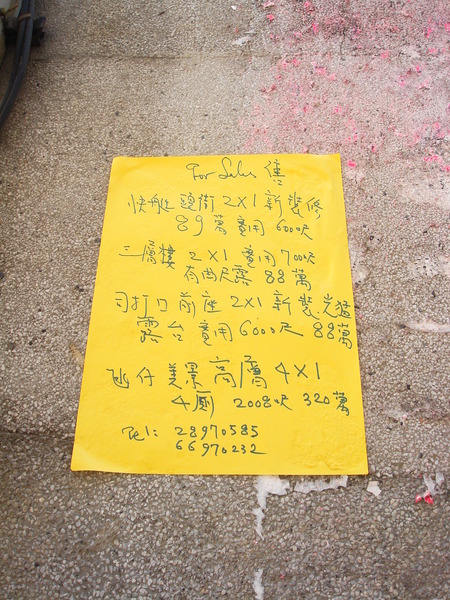 For Sales 售
快艇頭街 2X1 新裝修
89萬 實用 600呎
三層樓 2X1 實用 700呎
有曲尺露 88萬
司打口前座 2X1 新裝光猛
露台 實用 600呎 88萬
氹仔美景高層 4X1
4厠 2008呎 320萬
Tel: 28970585
66970232